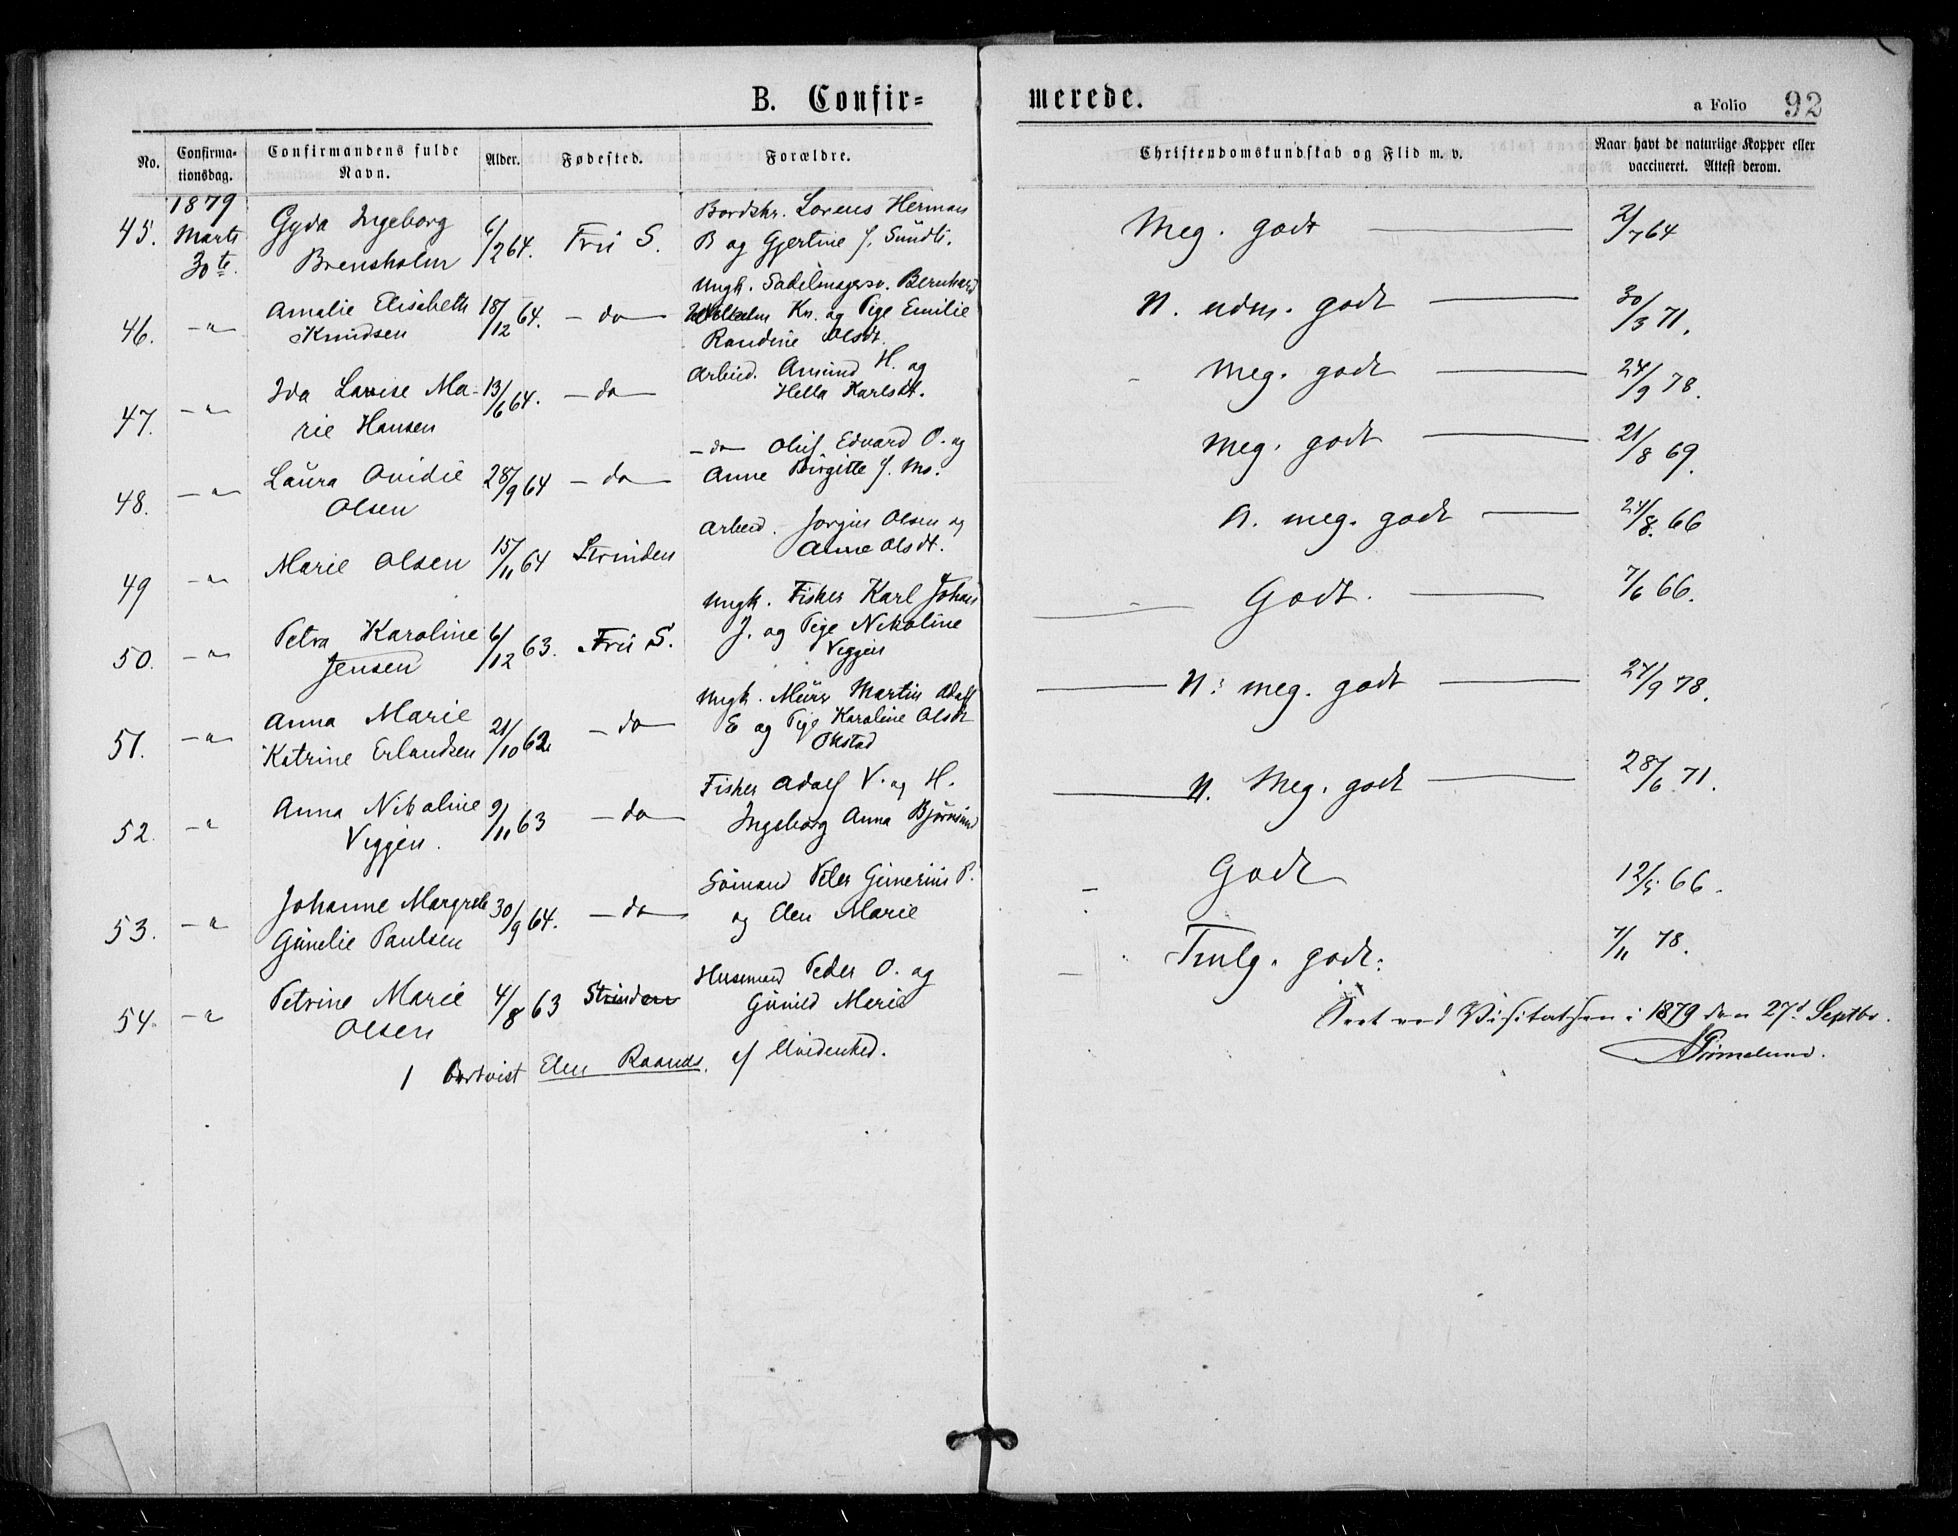 B. Confir=
merede.
a Folio 92
No. Confirma-tionsdag. Confirmandens fulde Navn. Alder. Fødested. Forældre. Christendomskundskab og Flid m. v. Naar havt de naturlige Kopper eller vaccineret. Attest derom.
1879
45. Marts 30te. Gyda Ingeborg 6/2 64. Frii S. Bordskr. Lorens Herman Meg. godt 2/7 64
Brensholm B og Gjertine f. Sundts.
46. -"- Amalie Elisabeth 18/12 64. - do - Ungk. Sadelmagersv. Bernhard N. udm. godt 30/3 71.
Knudsen Wilhelm Kn. og Pige Emilie
Randine Olsdt.
47. -"- Ida Lovise Ma- 13/6 64. - do - Arbeid. Amund H. og Meg. godt 24/9 78.
rie Hansen Hella Karlsdt.
48. -"- Laura Ovidie 28/9 64 - do - - do - Oluf Edvard O. og Meg. godt 21/8 69.
Olsen Anne Birgitte f. Mo.
49 -"- Marie Olsen 15/11 64 Strinden Arbeid. Jørgen Olsen og N. meg. godt 24/8. 66
Anne Olsdt.
50. -"- Petra Karoline 6/12 63. Frii S. Ungk. Fisker Karl Johan Godt. 7/6 66.
Jensen J. og Pige Nikoline
Viggen
51. -"- Anna Marie 21/10 62 - do Ungk. Murer Martin Adolf N: meg. godt 24/9 78.
Katrine Erlandsen E og Pige Karoline Olsdt
Okstad
52. -" Anna Nikoline 9/11 63 - do - Fisker Adolf V. og H. N. Meg. godt 28/6 71.
Viggen. Ingeborg Anna Bjørnsund
53. -" Johanne Margrete 30/9 64. - do - Sömand Peter Gunerius P. Godt 12/5 66.
Gunelie Paulsen og Elen Marie
54. -" Petrine Marie 4/8 63 Strinden Husmand Peder O. og Temlg. godt. 7/11 78.
Olsen Gunild Marie
1 bortvist Elen Raands. af Uvidenhed.
Seet ved Visitatsen i 1879 den 27d Septbr.
Grimelund.